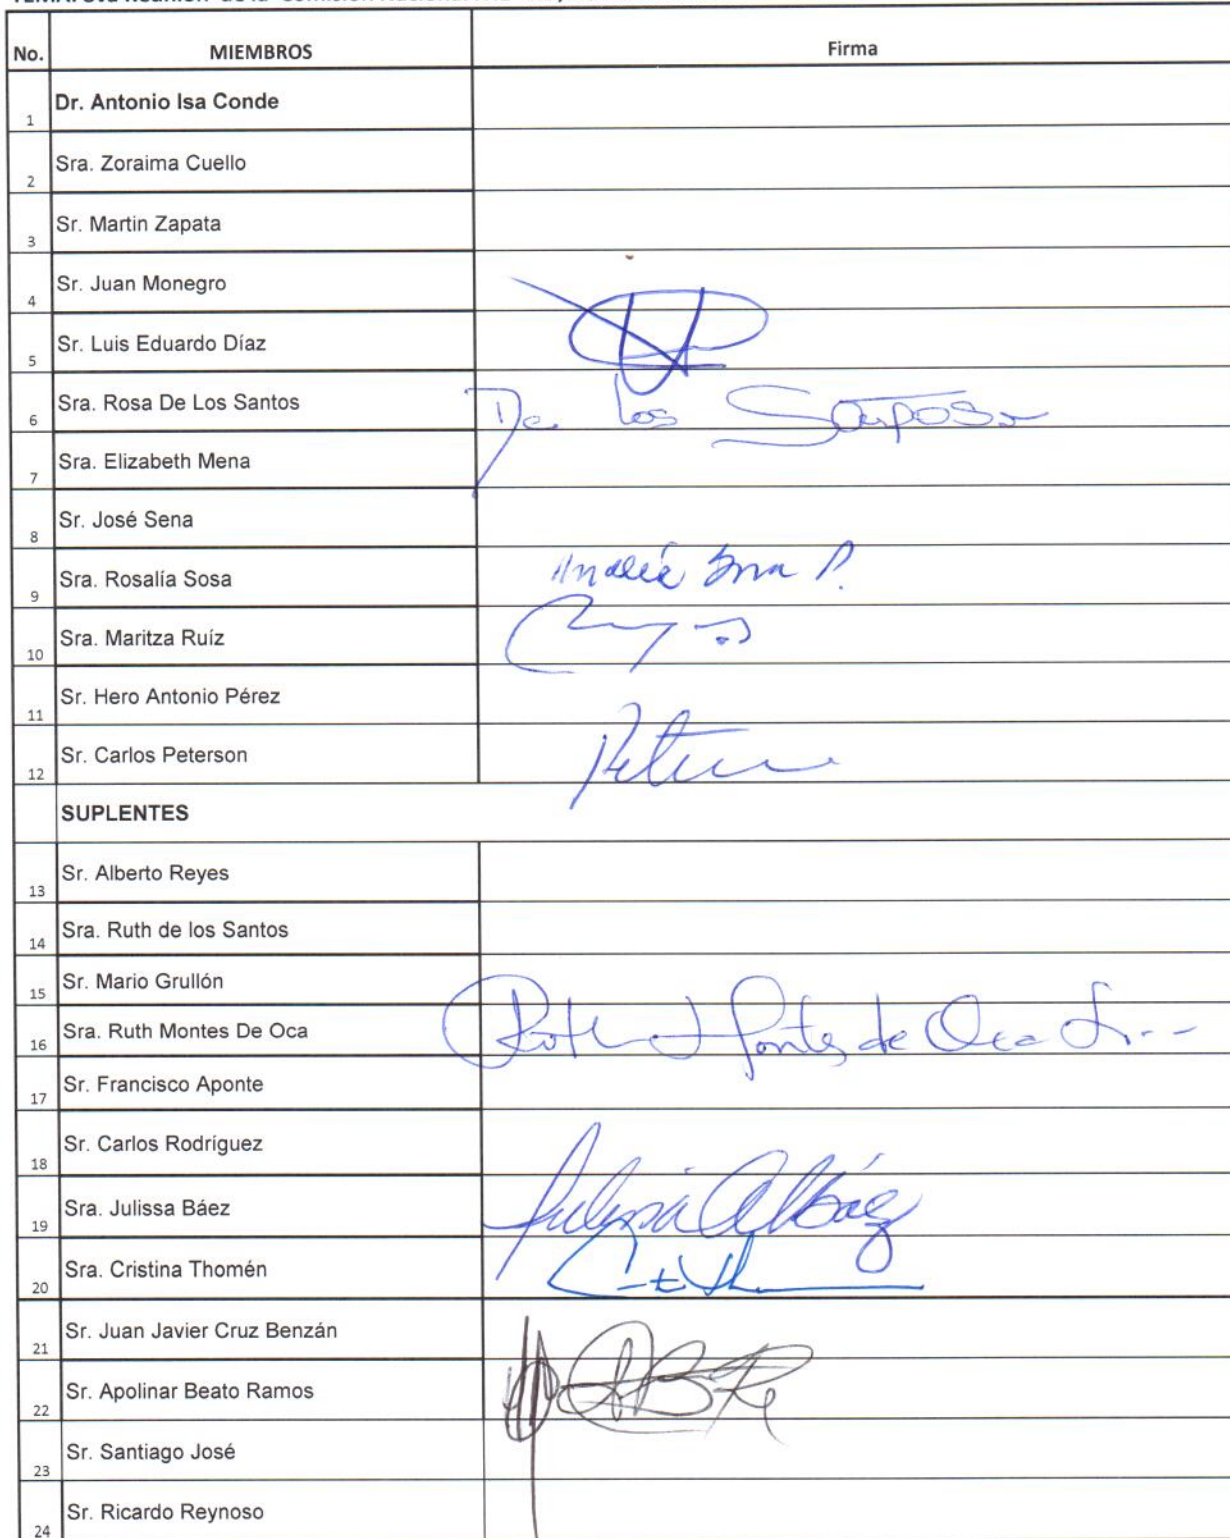 No. MIEMBROS Firma
1 Dr. Antonio Isa Conde
2 Sra. Zoraima Cuello
3 Sr. Martin Zapata
4 Sr. Juan Monegro
5 Sr. Luis Eduardo Díaz
6 Sra. Rosa De Los Santos De los Santos
7 Sra. Elizabeth Mena
8 Sr. José Sena
9 Sra. Rosalía Sosa
10 Sra. Maritza Ruíz
11 Sr. Hero Antonio Pérez
12 Sr. Carlos Peterson
SUPLENTES
13 Sr. Alberto Reyes
14 Sra. Ruth de los Santos
15 Sr. Mario Grullón
16 Sra. Ruth Montes De Oca Ruth Montes de Oca
17 Sr. Francisco Aponte
18 Sr. Carlos Rodríguez
19 Sra. Julissa Báez
20 Sra. Cristina Thomén
21 Sr. Juan Javier Cruz Benzán
22 Sr. Apolinar Beato Ramos
23 Sr. Santiago José
24 Sr. Ricardo Reynoso